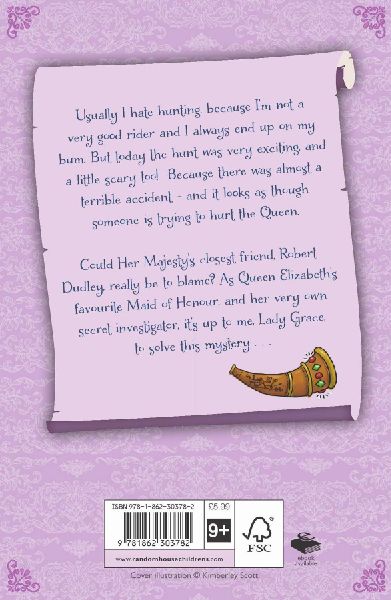 Usually I hate hunting, because I'm not a
very good rider and I always end up on my
bum. But today the hunt was very exciting, and
a little scary too! Because there was almost a
terrible accident - and it looks as though
someone is trying to hurt the Queen.
Could Her Majesty's closest friend, Robert
Dudley, really be to blame? As Queen Elizabeth's
favourite Maid of Honour, and her very own
secret investigator, it's up to me, Lady Grace,
to solve this mystery . . .
ISBN 978-1-862-30378-2
£5.99
9 781862 303782
9+
FSC
ebook
available
www.randomhousechildrens.com
Cover illustration © Kimberley Scott